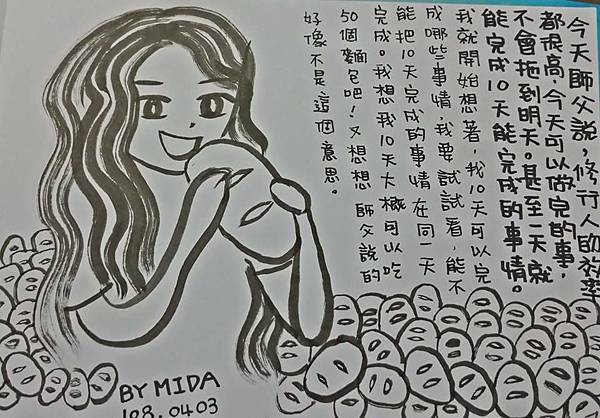 今天師父說，修行人的效率
都很高，今天可以做完的事，
不會拖到明天。甚至一天就
能完成10天能完成的事情。
我就開始想著，我10天可以完
成哪些事情，我要試試看，能不
能把10天完成的事情在同一天
完成。我想我10天大概可以吃
50個麵包吧！又想想 師父說的
好像不是這個意思。
BY MIDA
108.0403